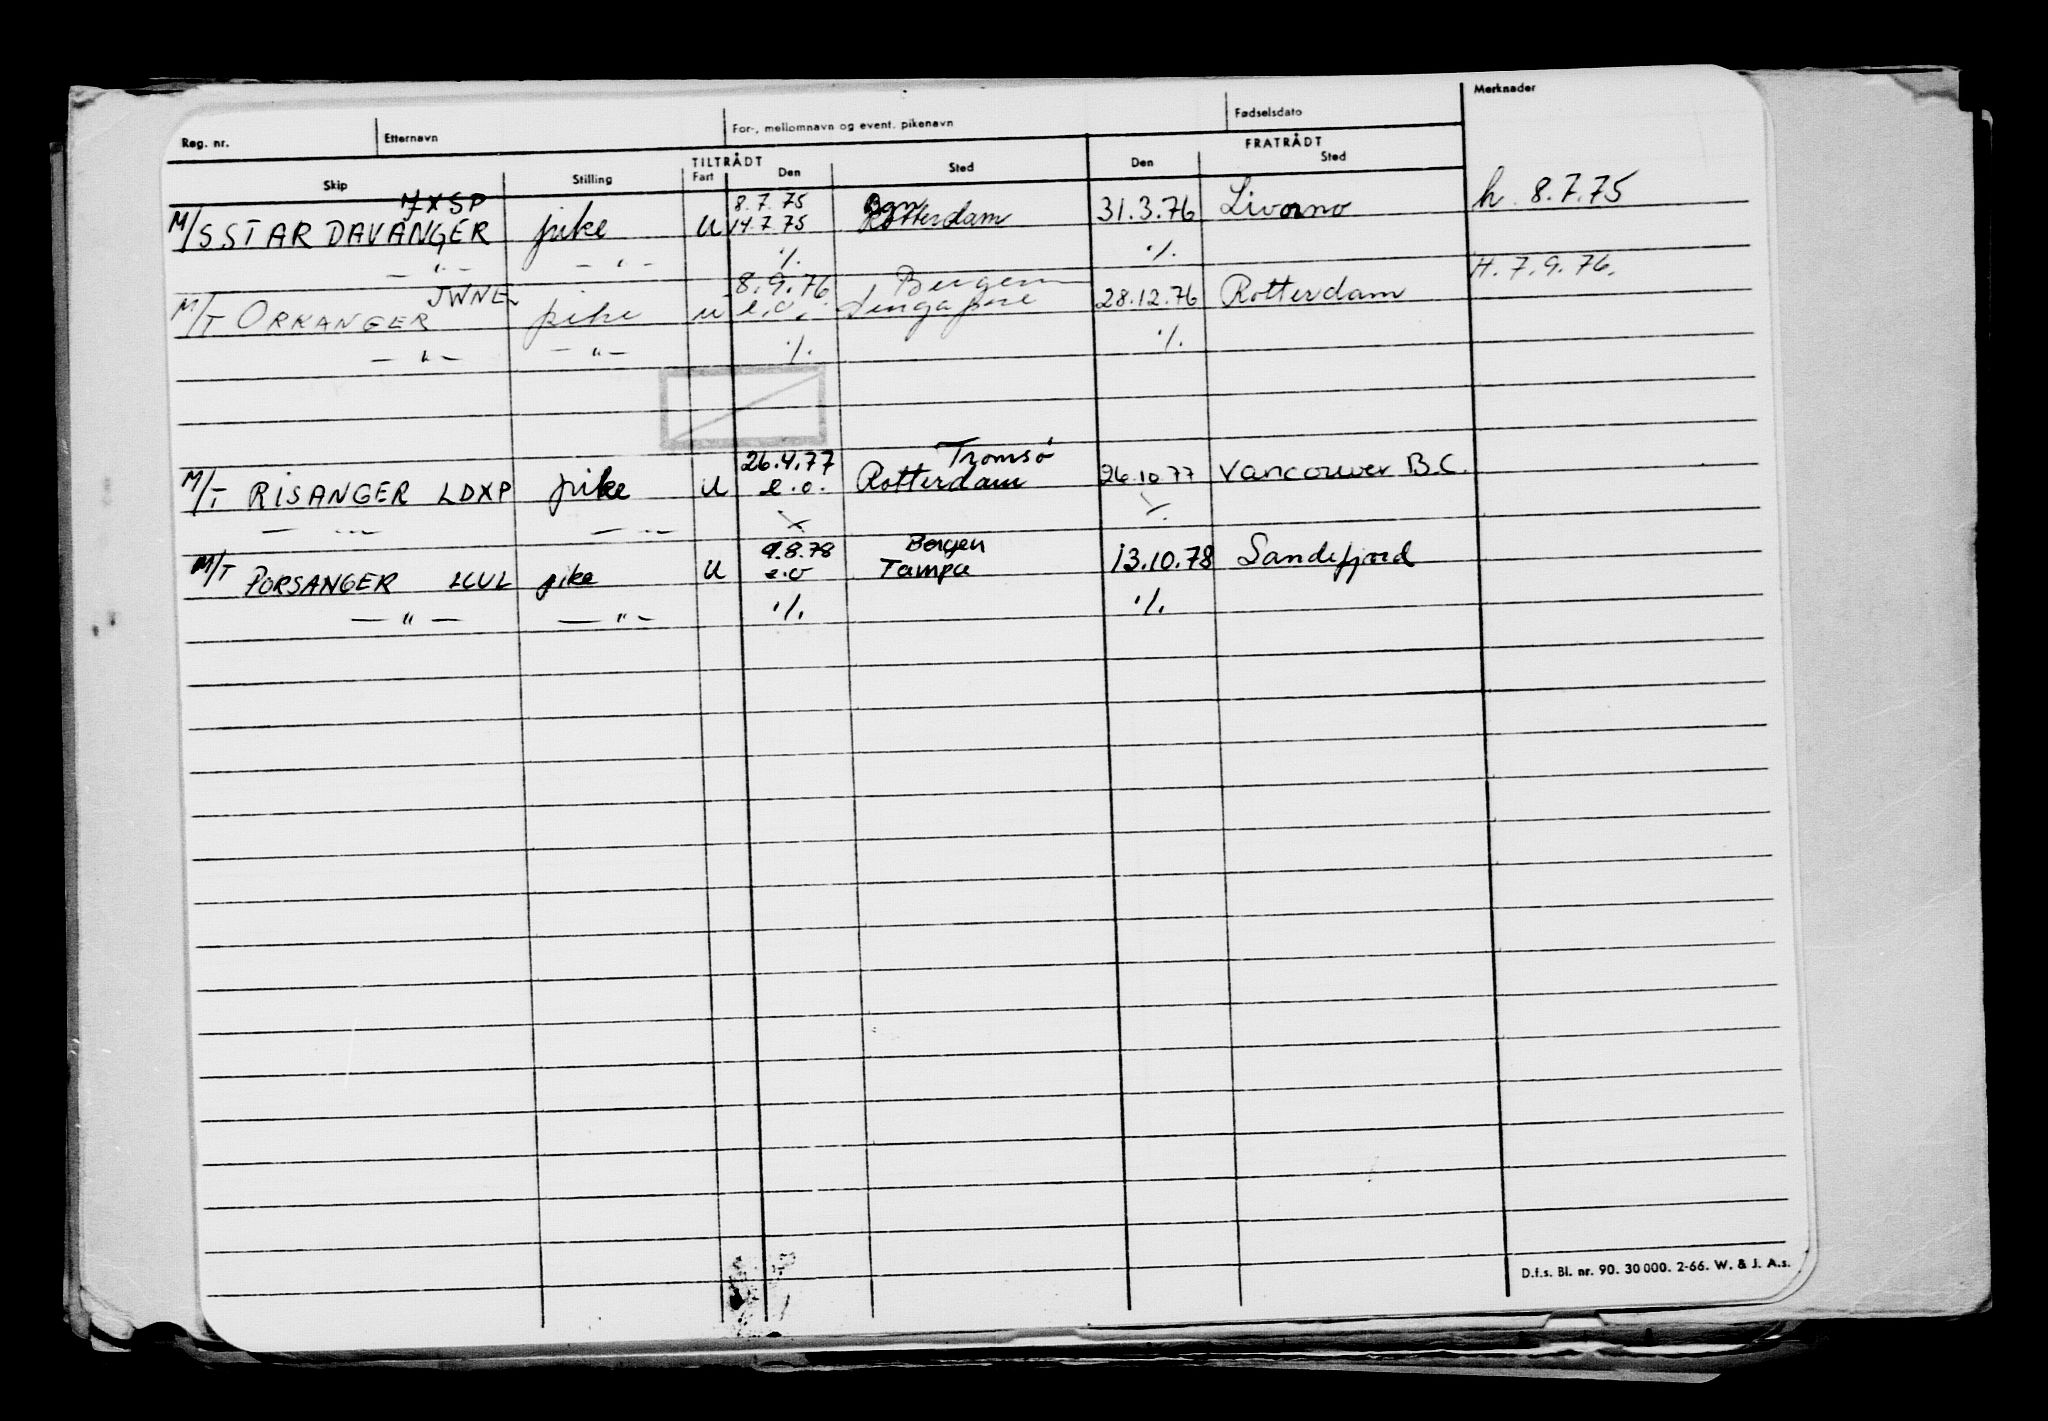 Merknader
Reg. nr. Etternavn For-, mellomnavn og event. pikenavn Fødselsdato
TILTRÅDT FRATRÅDT
Skip Stilling Fart Den Sted Den Sted
JXSP 8.7.75 Bgn
M/S STAR DAVANGER pike U 14.7.75 Rotterdam 31.3.76 Livorno h. 8.7.75
— " — — " — ·/. ·/.
JWNE 8.9.76 Bergen H. 7.9.76.
M/T ORKANGER pike u e.o. Singapore 28.12.76 Rotterdam
— " — — " — ·/. ·/.
26.4.77 Tromsø
M/T RISANGER LDXP pike U e.o. Rotterdam 26.10.77 Vancouver B.C.
— " — — " —
9.8.78 Bergen
M/T PORSANGER LCUL pike U e.o Tampa 13.10.78 Sandefjord
— " — — " — ·/. ·/.
D.f.s. Bl. nr. 90. 30 000. 2-66. W. & J. A.s.